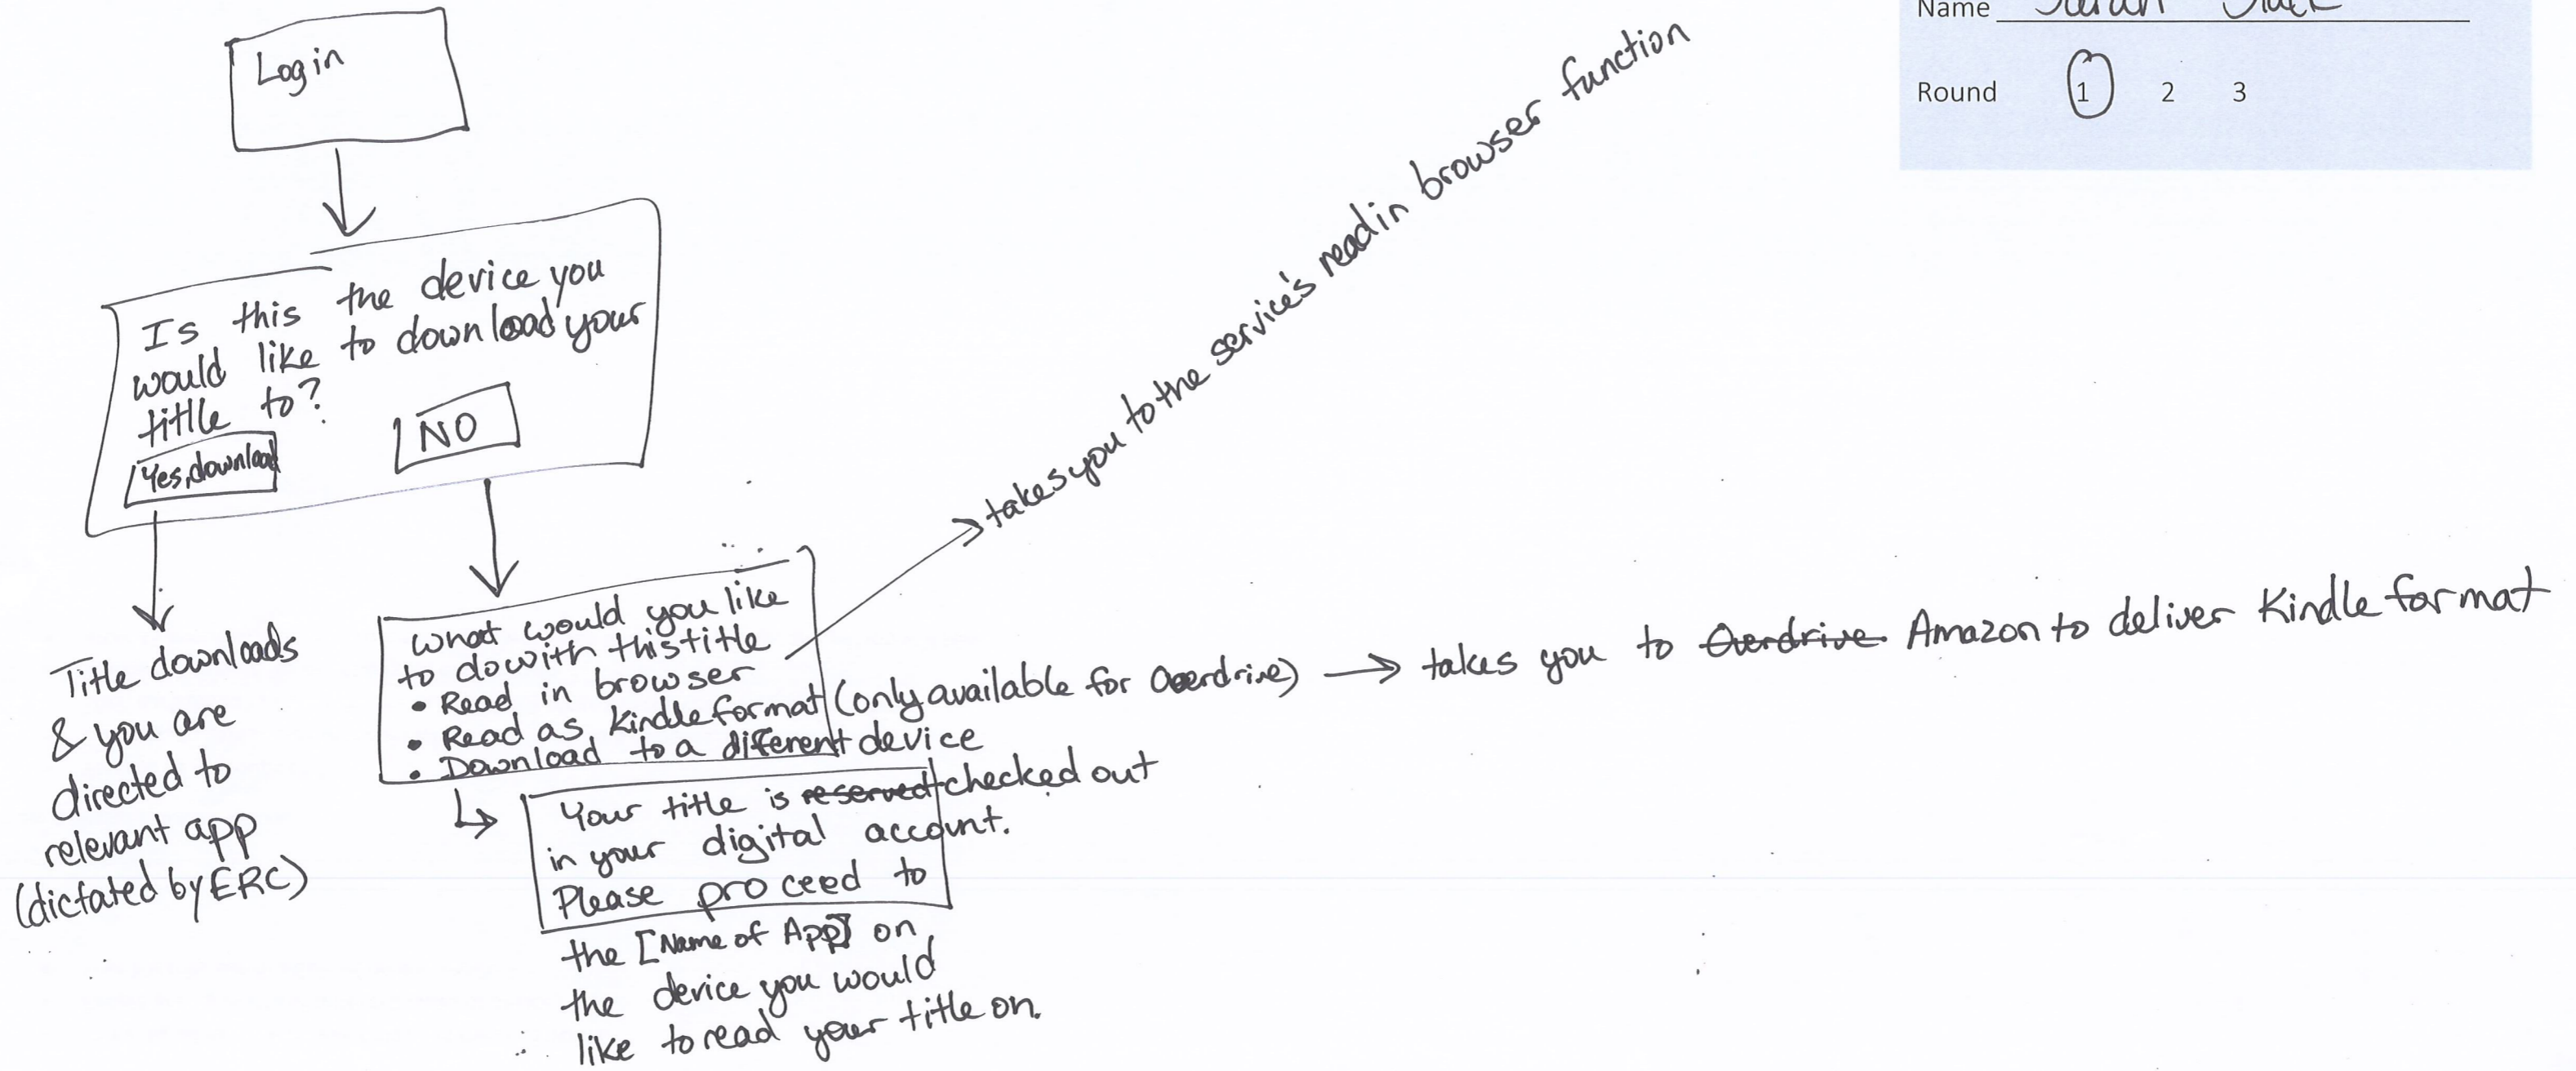 Name
Round 1 2 3
Login
Is this the device you
would like to download your
titlle to?
Yes, download
NO
Title downloads
& you are
directed to
relevant app
(dictated by ERC)
What would you like
to do with this title
• Read in browser
• Read as Kindle format (only available for Overdrive) → takes you to Overdrive Amazon to deliver Kindle format
• Download to a different device
takes you to the service's read in browser function
Your title is reserved checked out
in your digital account.
Please proceed to
the [Name of App] on
the device you would
like to read your title on.